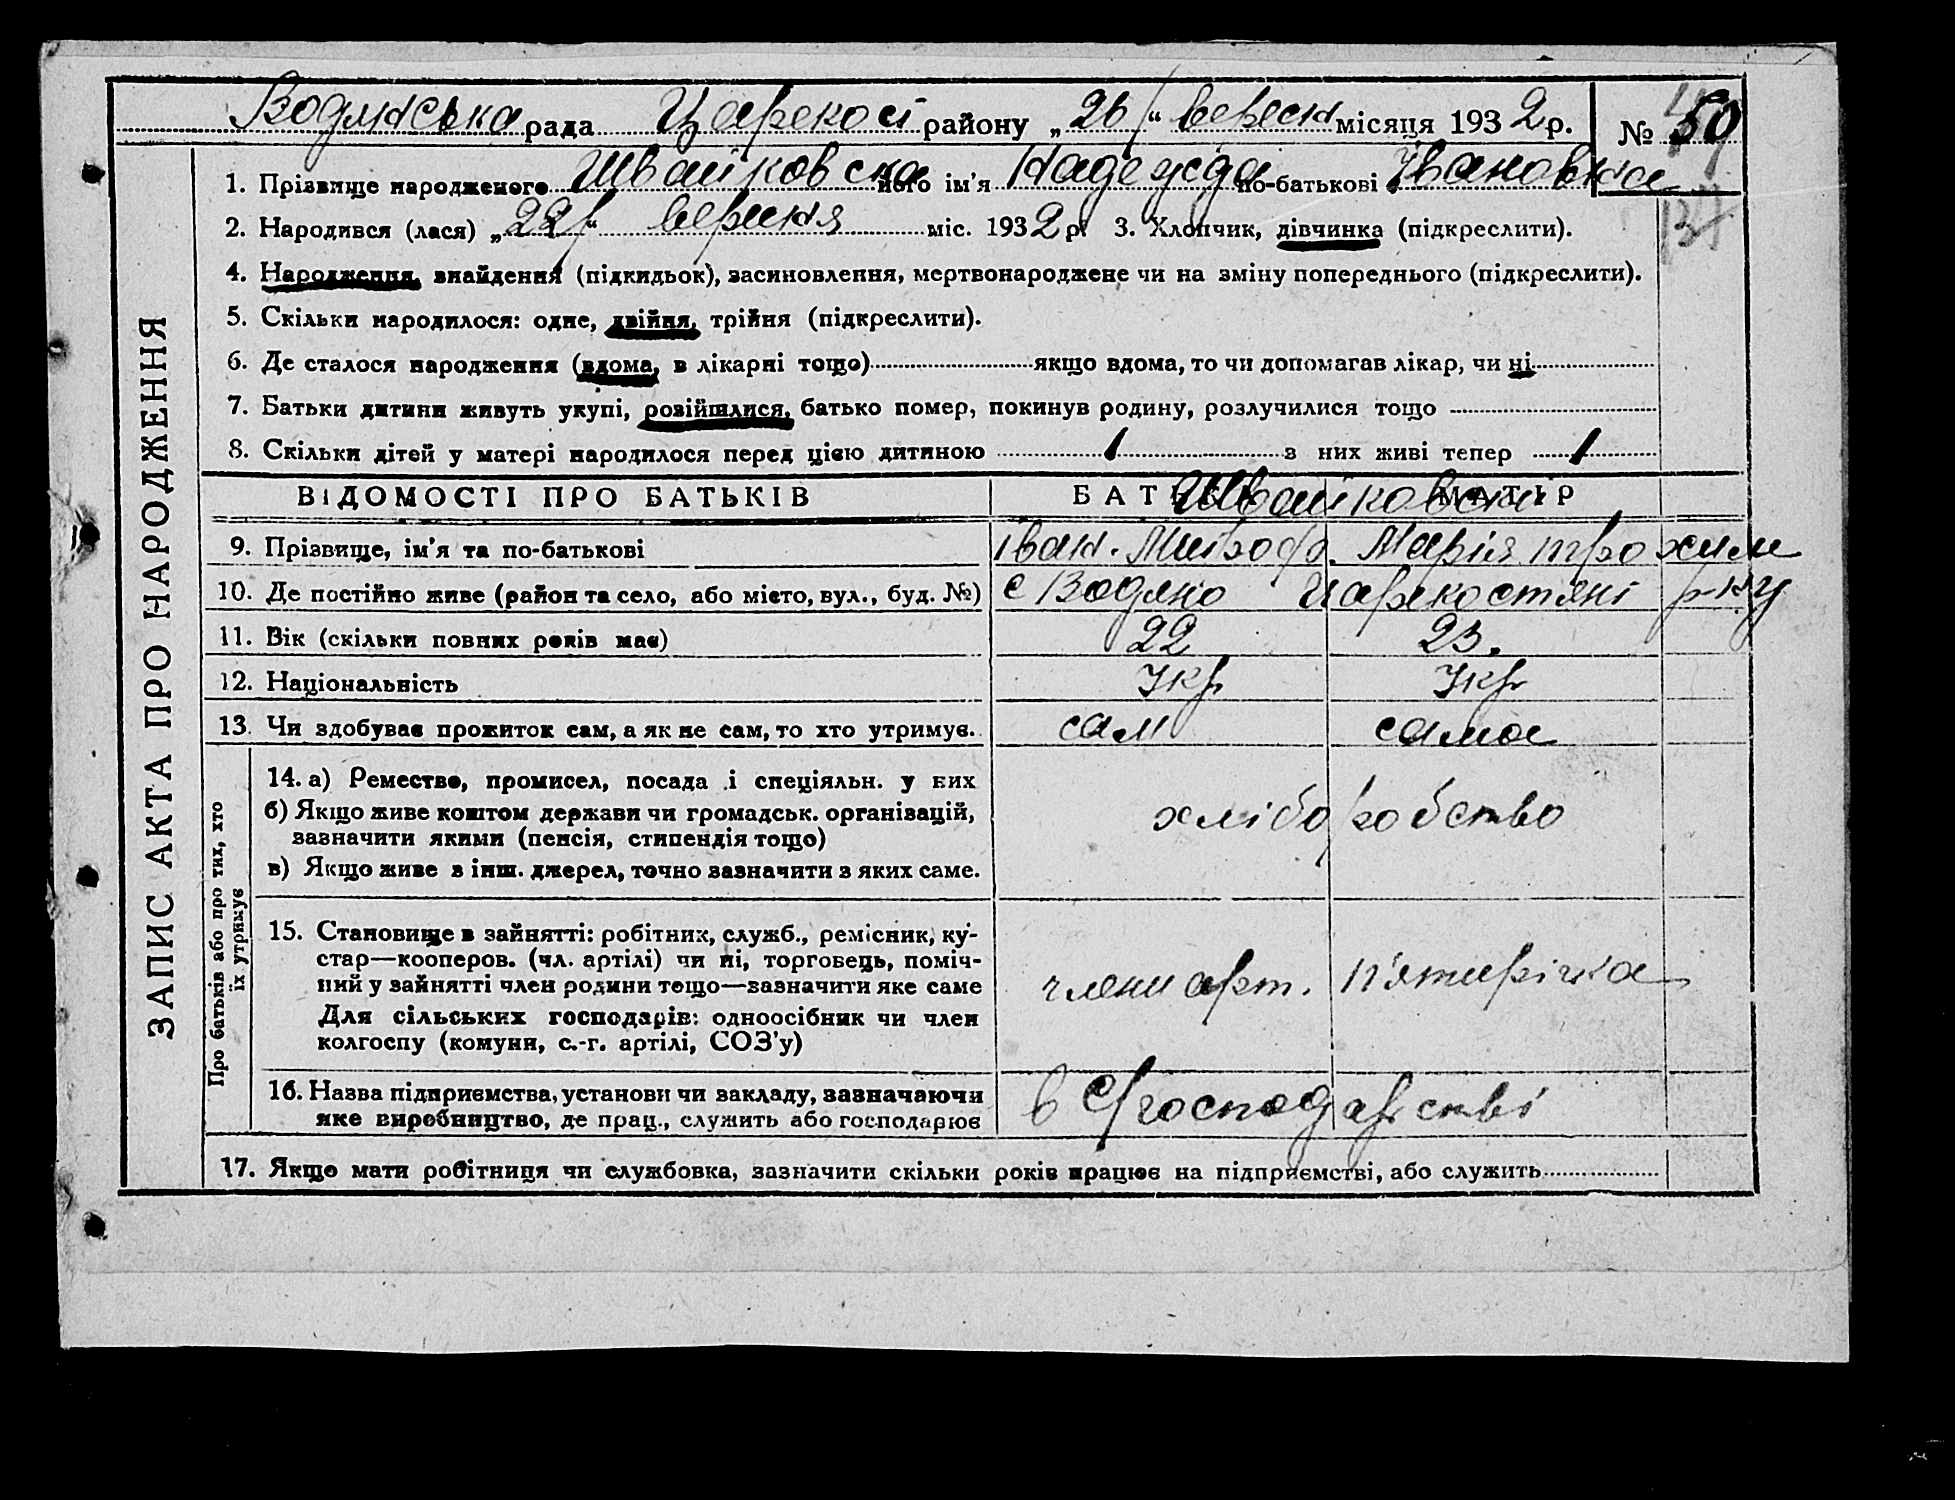 Водянська рада Царекост району „26“ вересн місяця 1932 р. № 50
ЗАПИС АКТА ПРО НАРОДЖЕННЯ
1. Прізвище народженого Швайковска його ім'я Надежда по-батькові Івановна
2. Народився (лася) „22“ вересня міс. 1932 р. 3. Хлопчик, дівчинка (підкреслити).
4. Народження, знайдення (підкидьок), засиновлення, мертвонароджене чи на зміну попереднього (підкреслити).
5. Скільки народилося: одне, двійня, трійня (підкреслити).
6. Де сталося народження (вдома, в лікарні тощо) якщо вдома, то чи допомагав лікар, чи ні
7. Батьки дитини живуть укупі, розійшлися, батько помер, покинув родину, розлучилися тощо
8. Скільки дітей у матері народилося перед цією дитиною 1 з них живі тепер 1
ВІДОМОСТІ ПРО БАТЬКІВ БАТЬКО МАТІР
Швайковски
9. Прізвище, ім'я та по-батькові Іван. Митроф. Марія трохим
10. Де постійно живе (район та село, або місто, вул., буд. №) с Водяно Царекостяні р-ну
11. Вік (скільки повних років має) 22 23.
12. Національність Укр Укр
13. Чи здобуває прожиток сам, а як не сам, то хто утримує. сам сама
Про батьків або про тих, хто їх утримує
14. а) Ремество, промисел, посада і спеціяльн. у них
б) Якщо живе коштом держави чи громадськ. організацій,
зазначити якими (пенсія, стипендія тощо) хліборобство
в) Якщо живе з інш. джерел, точно зазначити з яких саме.
15. Становище в зайнятті: робітник, служб., ремісник, ку-
стар—кооперов. (чл. артілі) чи ні, торговець, поміч-
ний у зайнятті член родини тощо—зазначити яке саме члени арт. П'ятирічка
Для сільських господарів: одноосібник чи член
колгоспу (комуни, с.-г. артілі, СОЗ'у)
16. Назва підприємства, установи чи закладу, зазначаючи в с/господарстві
яке виробництво, де прац., служить або господарює
17. Якщо мати робітниця чи службовка, зазначити скільки років працює на підприємстві, або служить